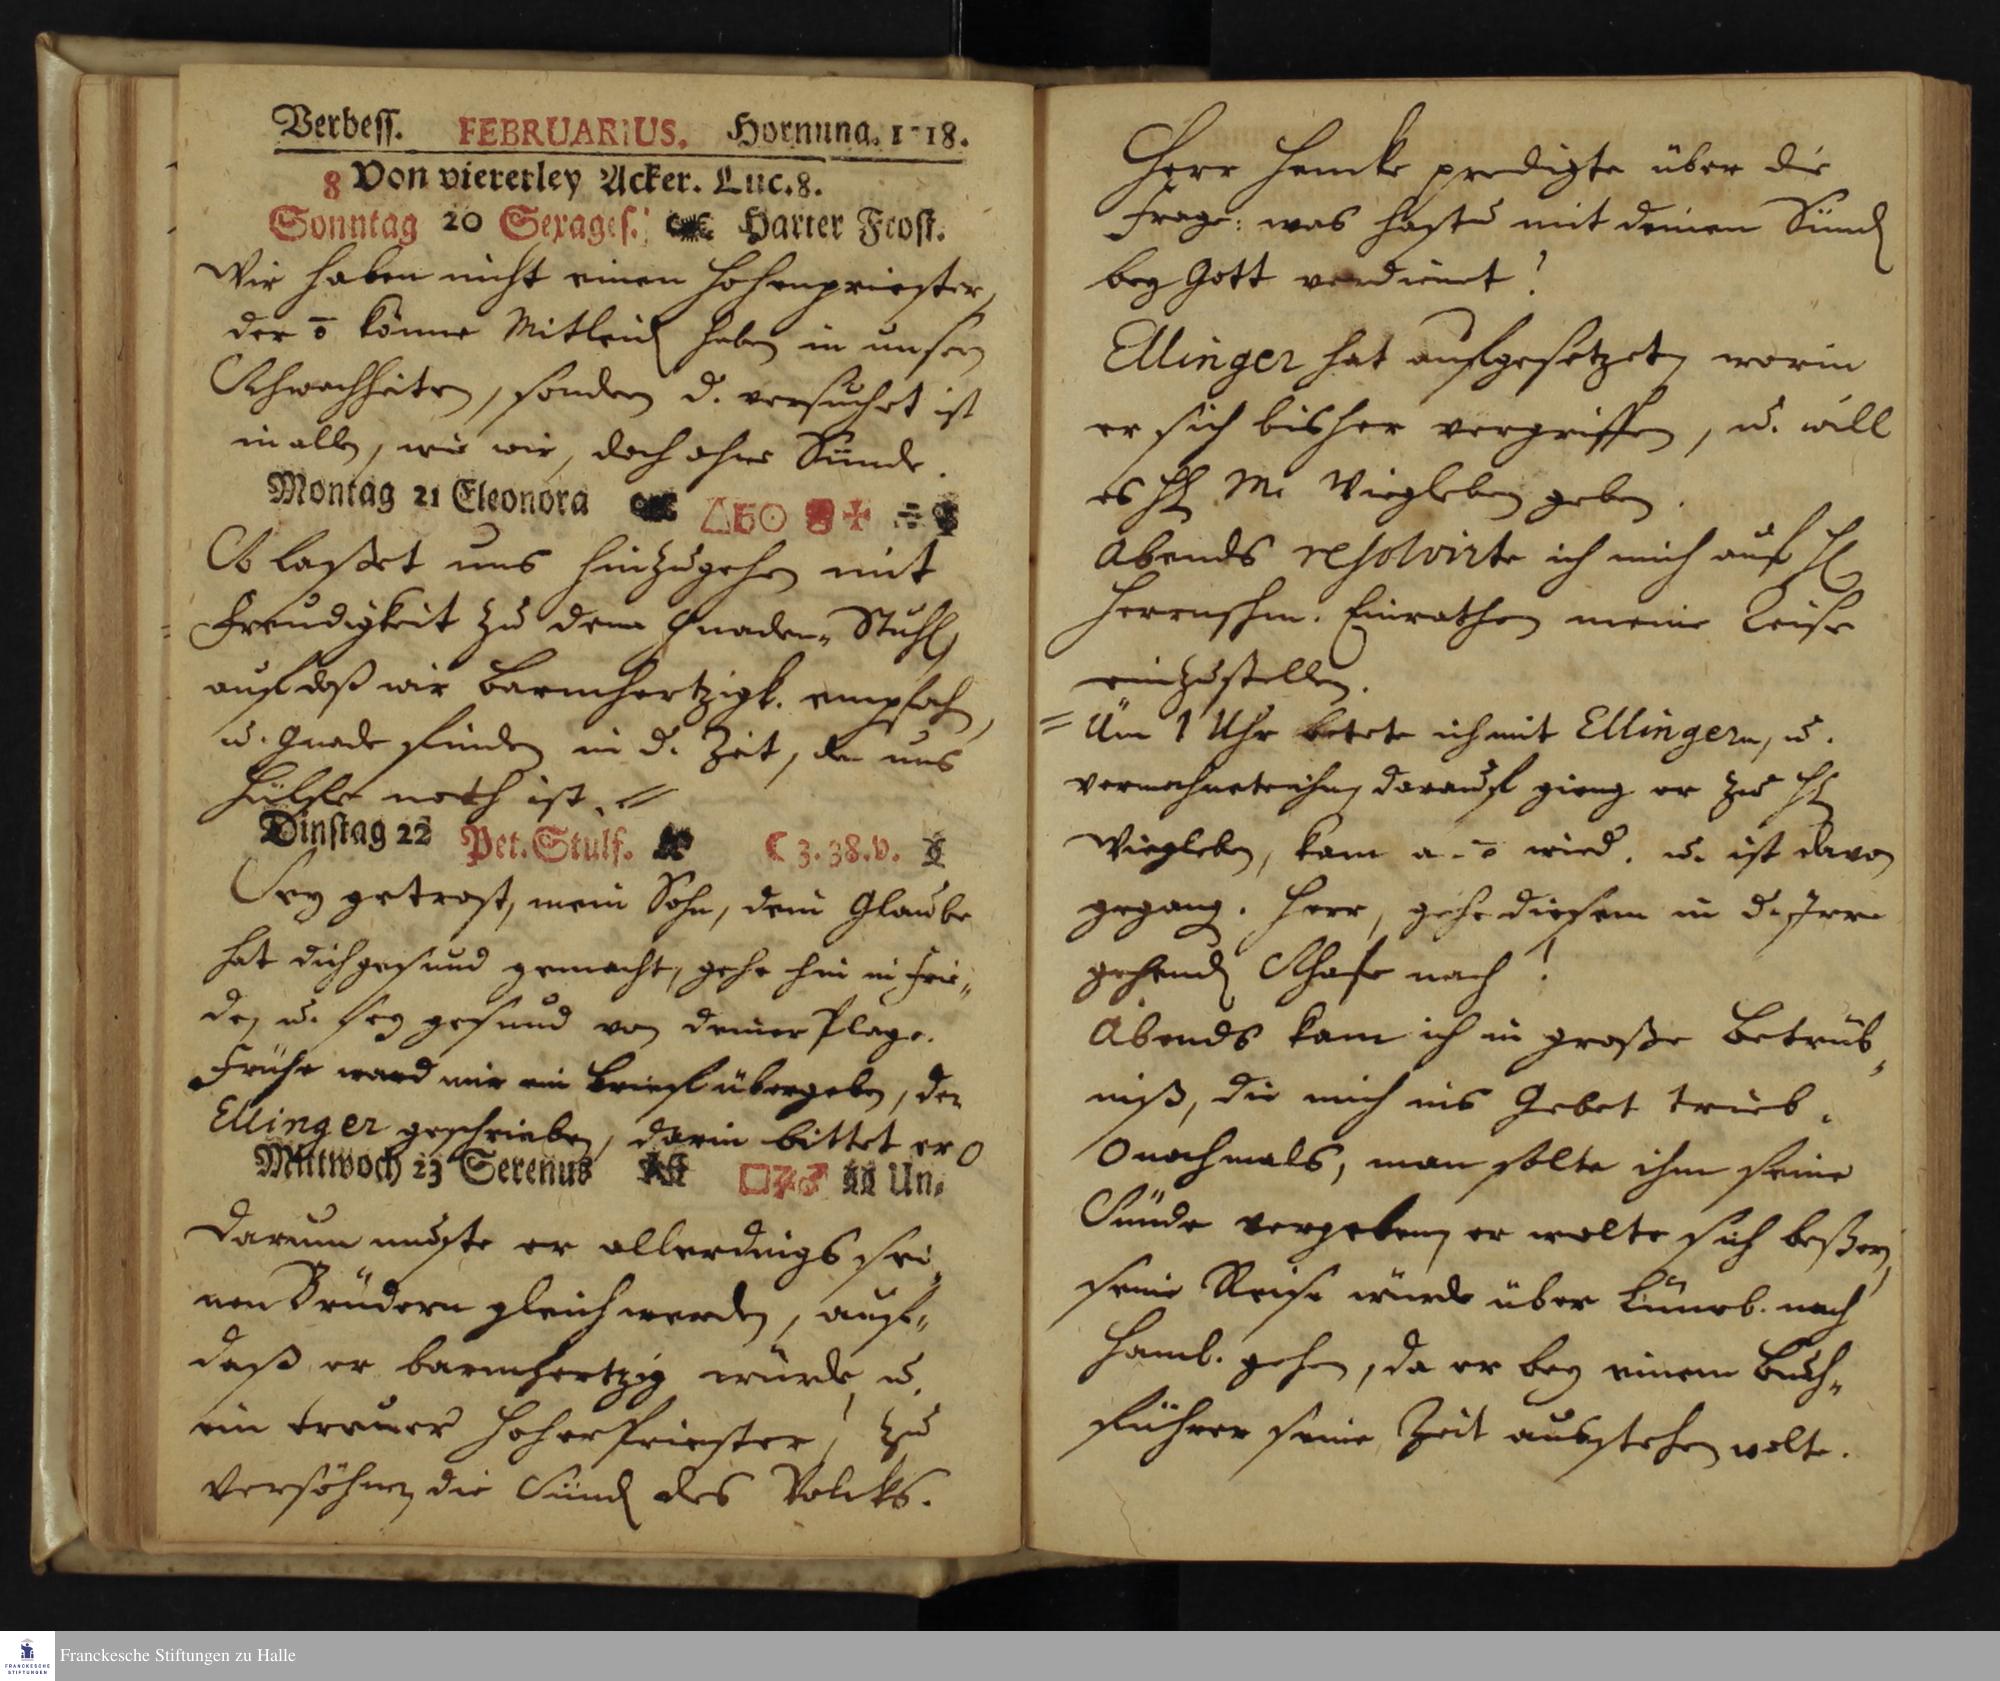 Verbeſſ. FEBRUARIUS. Hornung. 1718.
8 Von viererley Acker. Luc.8.
Sonntag 20 Sexageſ. Harter Froſt.
Wir haben nicht einen Hohenpriester,
der ō könne Mitleid haben in unsern
Schwachheiten, sondern d. versuchet ist
in allen, wie wir, doch ohne Sünde.
Montag 21 Eleonora
laßet uns hinzugehen mit
Freudigkeit zu dem Gnaden„ Stuhl,
auf daß wir Barmhertzigk. empfahen,
u. Gnade finden in d. Zeit, den uns
Hülfe noth ist.
Dinſtag 22 Pet. Stulf. ☾ 3. 38. v.
Sey getrost, mein Sohn, dein Glaube
hat dich gesund gemacht, gehe hin in Frie„
den u. sey gesund von deiner Plage.
Frühe ward mir ein Brief übergeben, den
Ellinger geschrieben, darin bittet er O
Mittwoch 23 Serenus □♃♂ Un⸗
Darum muste er allerdings sei„
nen Brüdern gleich werden, auf„
daß er barmhertzig würde, u.
ein treuer Hoherpriester, zu
versöhnen die Sünd des Volcks.
Herr Hencke predigte über die
Frage: was hastu mit deinen Sünden
bey Gott verdienet?
Ellinger hat aufgesetzet, worin
er sich bisher vergriffen, u. will
es H. M. Wiegleben geben.
Abends resolvirte ich mich auf H.
Herrnschm. Einrathen meine Reise
einzustellen.
= Um 1 Uhr betete ich mit Ellingern, u.
vermahnete ihn, darauf gieng er zu H.
Wiegleben, kam a. ō wied. u. ist davon
gegang. Herr, gehe diesem in d. Irre
gehenden Schafe nach!
Abends kam ich in große Betrüb„
niß, die mich ins Gebet trieb.
O nochmals, man solte ihm seine
Sünde vergeben, er wolte sich beßern,
seine Reise würde über Lüneb. nach
Hamb. gehen, da er bey einem Buch„
führer seine Zeit ausstehen wolte.
Franckesche Stiftungen zu Halle
FRANCKESCHE
STIFTUNGEN